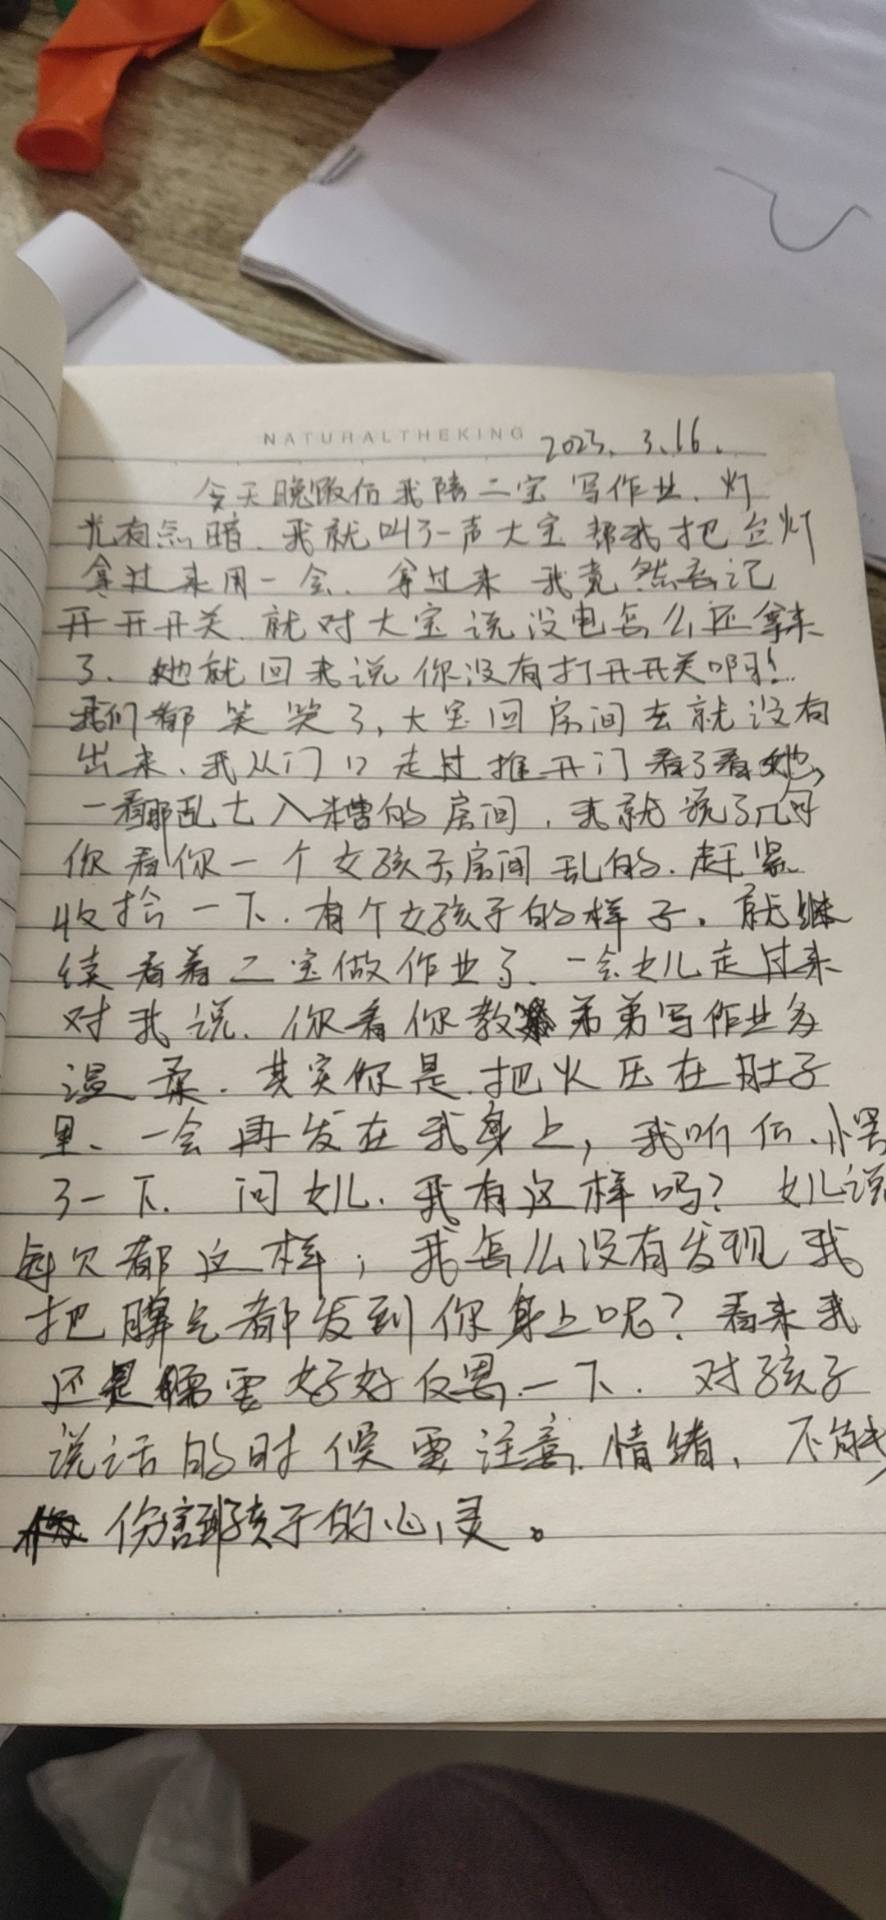 NATURALTHEKING
2023.3.16.
今天晚饭后我陪二宝写作业、灯
光有点暗、我就叫了一声大宝帮我把台灯
拿过来用一会、拿过来我竟然忘记
开开开关、就对大宝说没电怎么还拿来
了、她就回来说你没有打开开关啊!
我们都笑笑了,大宝回房间去就没有
出来、我从门口走过推开门看了看她,
一看那乱七八糟的房间,我就说了几句
你看你一个女孩子房间乱的、赶紧
收拾一下、有个女孩子的样子、就继
续看着二宝做作业了、一会女儿走过来
对我说、你看你教弟弟写作业多
温柔、其实你是把火压在肚子
里、一会再发在我身上,我听后、愣
了一下、问女儿、我有这样吗?女儿说
每次都这样;我怎么没有发现我
把脾气都发到你身上呢?看来我
还是需要好好反思一下、对孩子
说话的时候要注意情绪、不能
伤害到孩子的心灵。